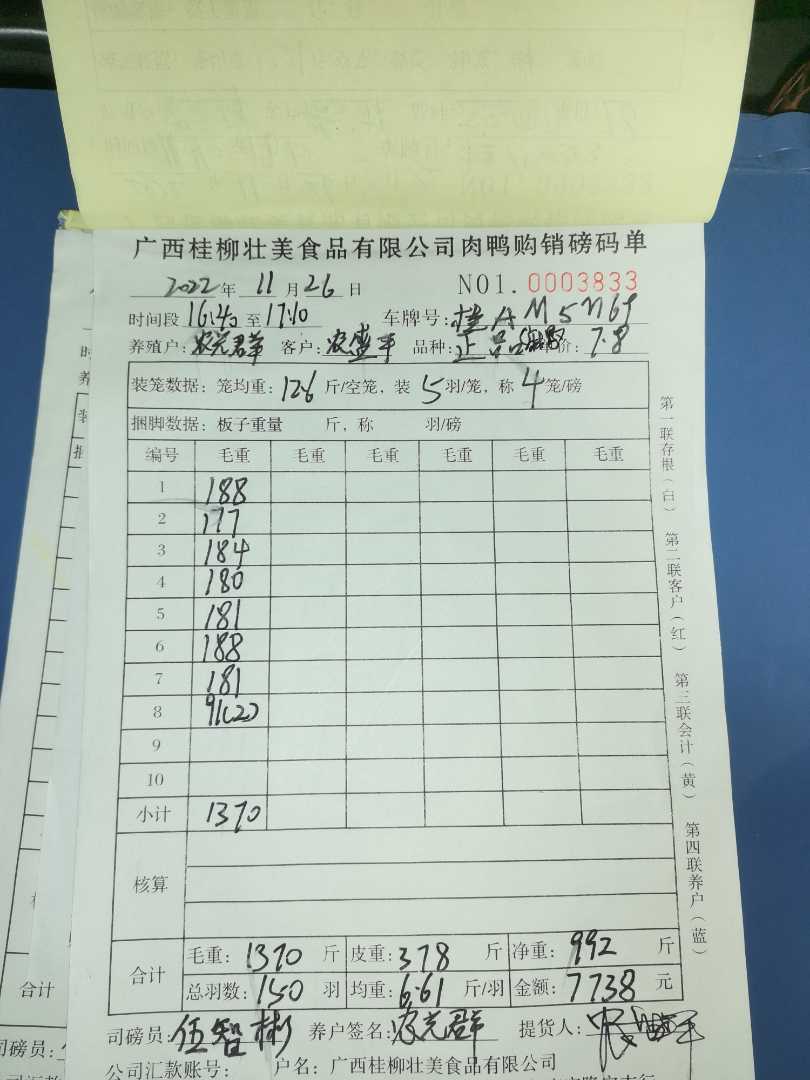 广西桂柳壮美食品有限公司肉鸭购销磅码单
2022年 11月26日 NO1.0003833
时间段 16:40 至 17:10 车牌号: 桂A
养殖户: 客户: 农盛丰 品种: 正品 单价: 7.8
装笼数据: 笼均重: 12.6 斤/空笼, 装 5 羽/笼, 称 4 笼/磅
捆脚数据: 板子重量 斤, 称 羽/磅
编号 毛重 毛重 毛重 毛重 毛重 毛重
1 188
2 177
3 184
4 180
5 181
6 188
7 181
8 91(2)
9
10
小计 1370
核算
合计 毛重: 1370 斤 皮重: 378 斤 净重: 992 斤
总羽数: 150 羽 均重: 6.61 斤/羽 金额: 7738 元
司磅员: 伍智彬 养户签名: 提货人:
公司汇款账号: 户名: 广西桂柳壮美食品有限公司
第一联存根(白) 第二联客户(红) 第三联会计(黄) 第四联养户(蓝)
合计
司磅员:
公司汇款